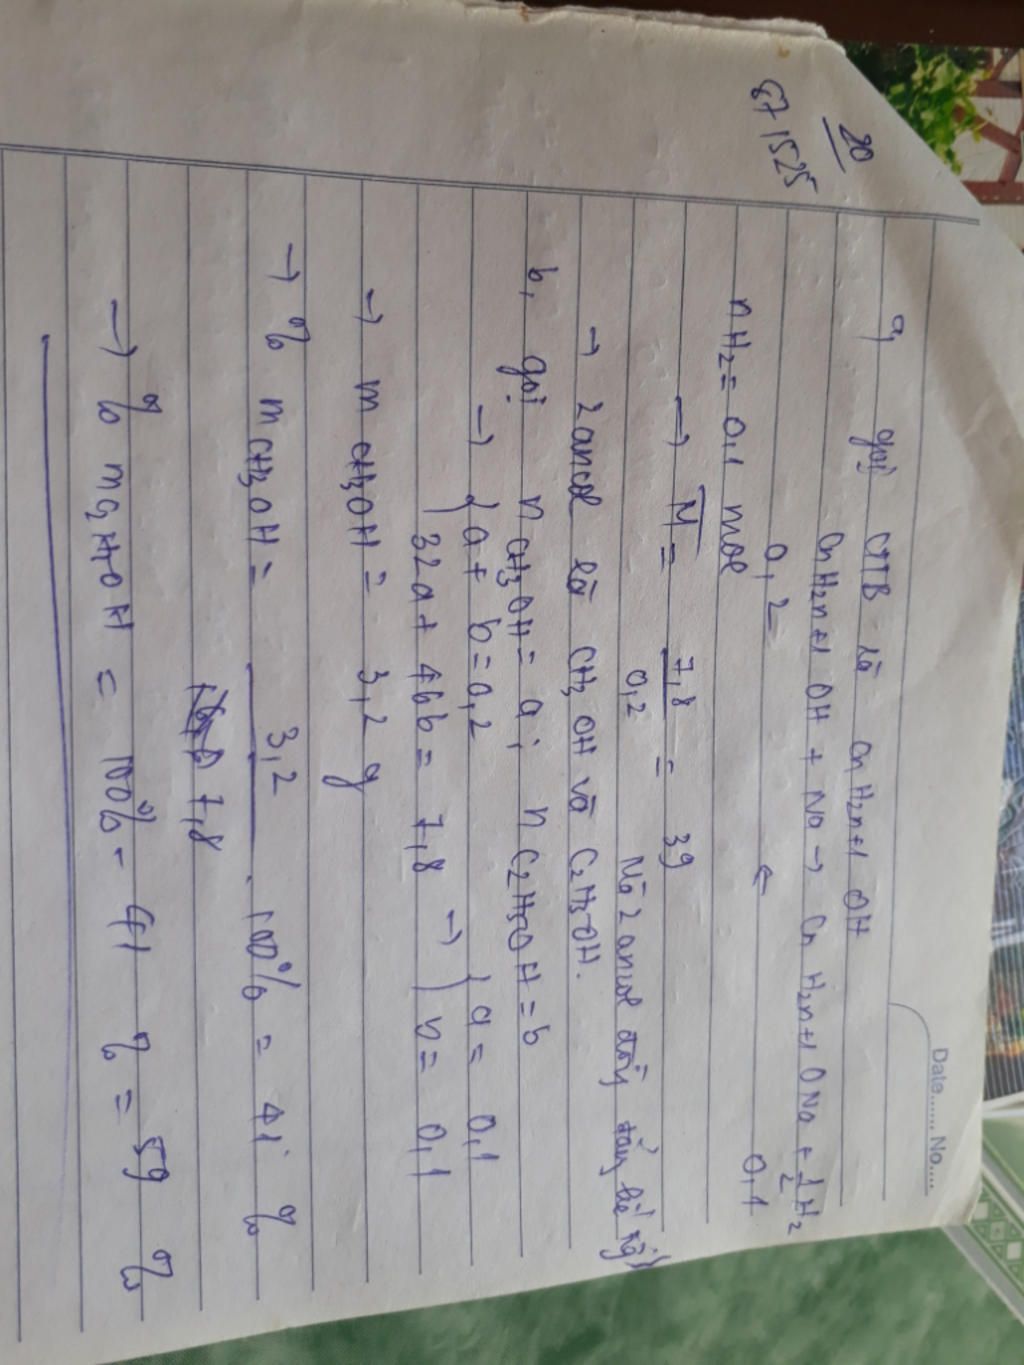 Date...... No....
20
671525
a, gọi CTTB là CnH2n+1 OH
CnH2n+1 OH + Na → CnH2n+1 ONa + 1/2 H2
0,2 ← 0,1
nH2 = 0,1 mol
→ M = 7,8 / 0,2 = 39
Mà 2 ancol đồng đẳng kế tiếp
→ 2 ancol là CH3OH và C2H5OH.
b, gọi nCH3OH = a ; nC2H5OH = b
→ { a + b = 0,2 { a = 0,1
32a + 46b = 7,8 → b = 0,1
→ mCH3OH = 3,2 g
→ % mCH3OH = 3,2 / 7,8 . 100% = 41 %
→ % mC2H5OH = 100% - 41 % = 59 %